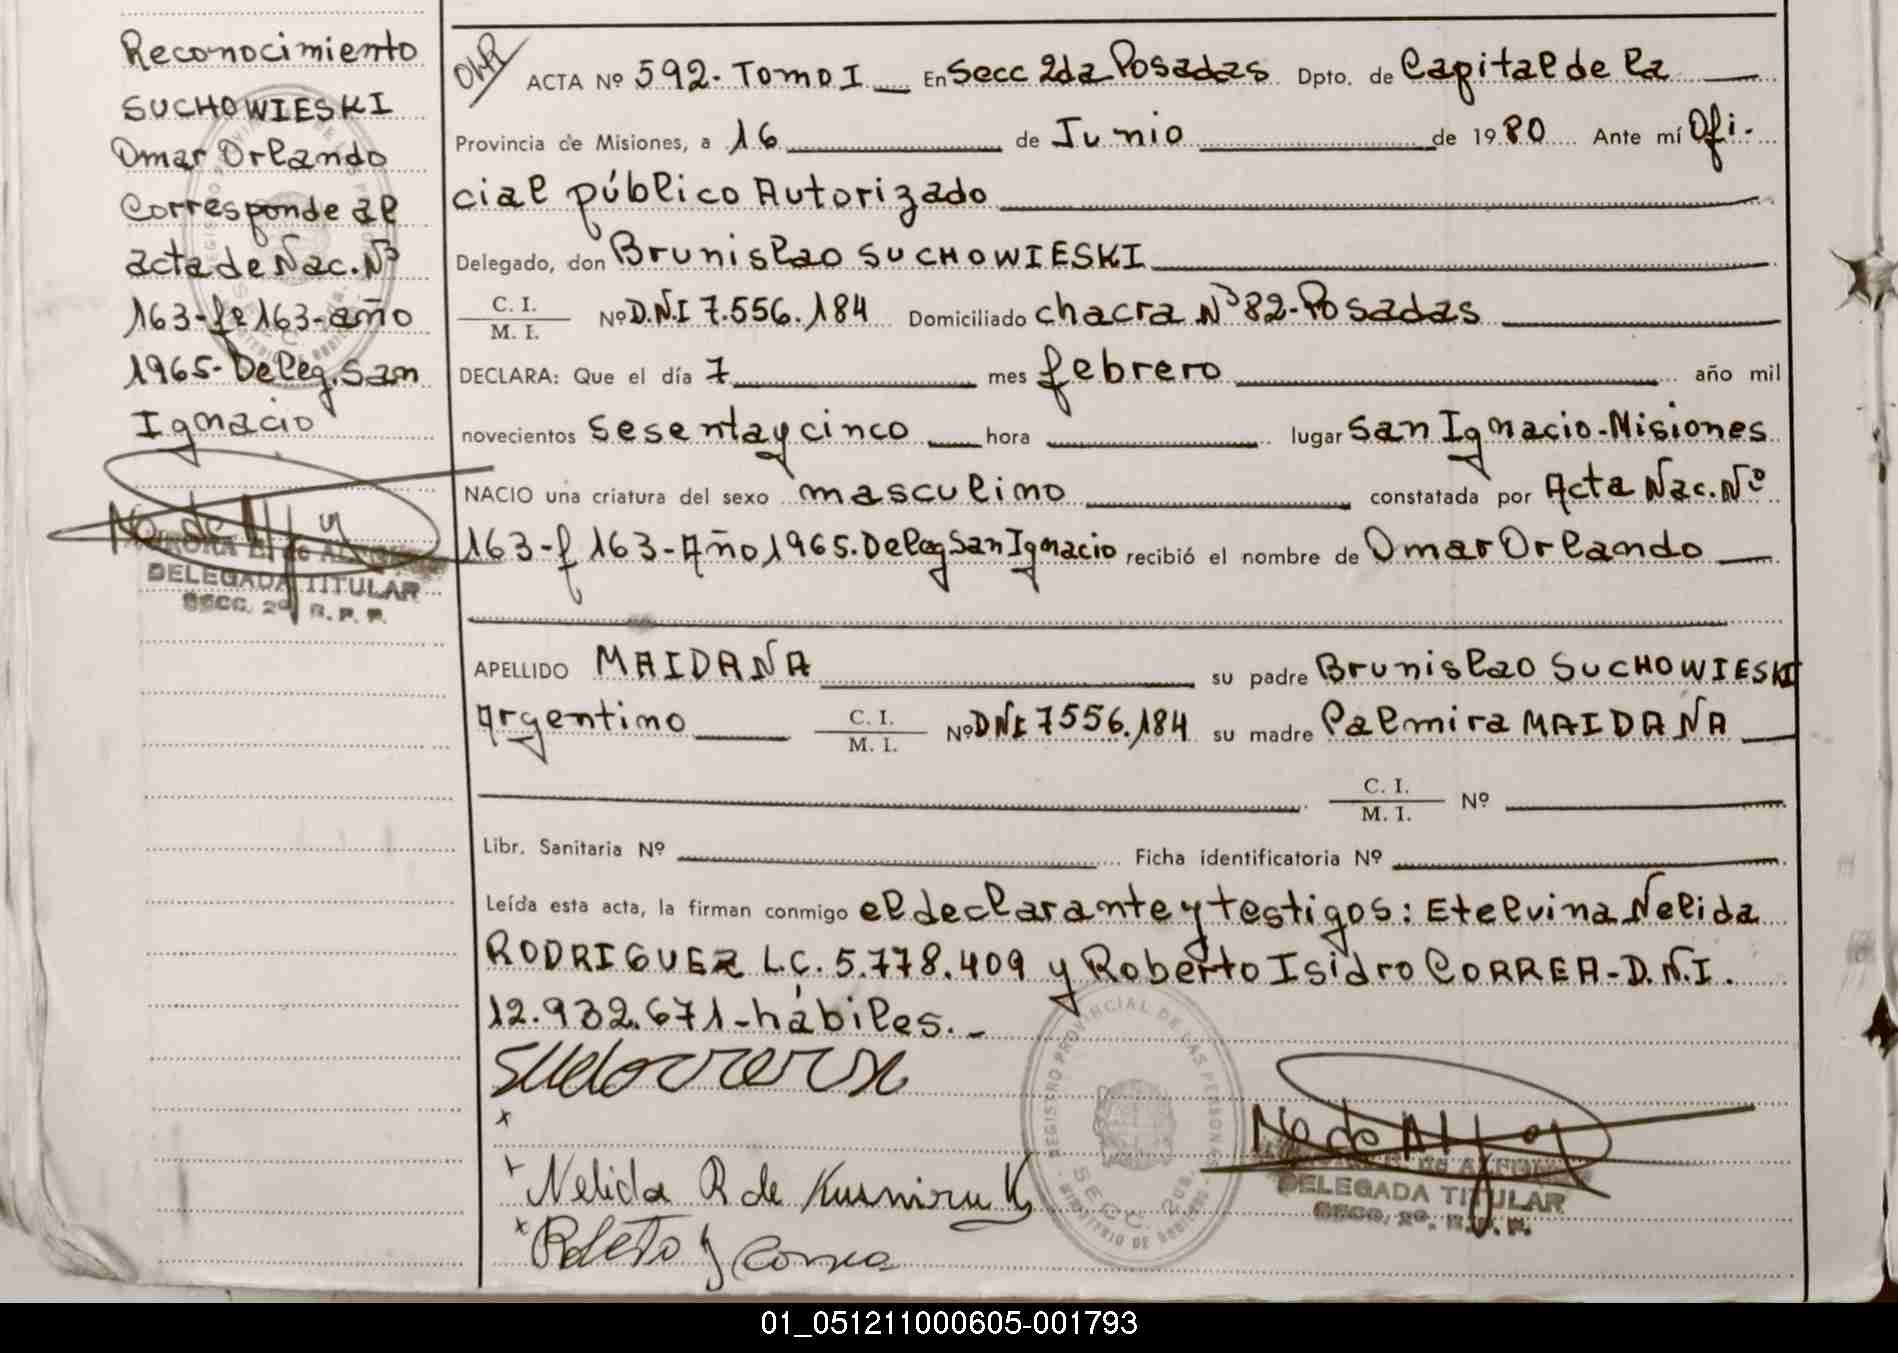 Reconocimiento
SUCHOWIESKI
Omar Orlando
Corresponde al
acta de Nac. Nº
163-fº 163-año
1965-Deleg. San
Ignacio
DELEGADA TITULAR
SECC. 2ª R. P. P.
ACTA Nº 592. Tomo I En Secc 2da Posadas Dpto. de Capital de la
Provincia de Misiones, a 16 de Junio de 1980 Ante mí Ofi-
cial público Autorizado
Delegado, don Brunislao SUCHOWIESKI
C. I.
M. I.
Nº D.N.I 7.556.184 Domiciliado chacra Nº 82-Posadas
DECLARA: Que el día 7 mes febrero año mil
novecientos sesenta y cinco hora lugar San Ignacio-Misiones
NACIO una criatura del sexo masculino constatada por Acta Nac. Nº
163-f 163-Año 1965. Deleg San Ignacio recibió el nombre de Omar Orlando
APELLIDO MAIDANA su padre Brunislao SUCHOWIESKI
Argentino C. I. M. I. Nº DNI 7556.184 su madre Palmira MAIDANA
C. I.
M. I.
Nº
Libr. Sanitaria Nº Ficha identificatoria Nº
Leída esta acta, la firman conmigo el declarante y testigos: Etelvina Nelida
RODRIGUEZ L.C. 5.778.409 y Roberto Isidro CORREA-D.N.I.
12.932.671-hábiles.-
x
x Nelida R de Kusniruk
x Roberto I Correa
REGISTRO PROVINCIAL DE LAS PERSONAS
SECC. 2da.
MINISTERIO DE GOBIERNO
DELEGADA TITULAR
SECC. 2ª. R. P. P.
01_051211000605-001793